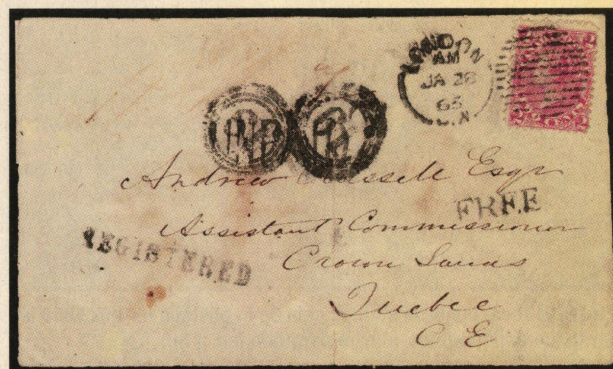 LONDON
AM
JA 28
65
C.W
2
Andrew Russell Esqr
FREE
Assistant Commissioner
REGISTERED
Crown Lands
Quebec
C E